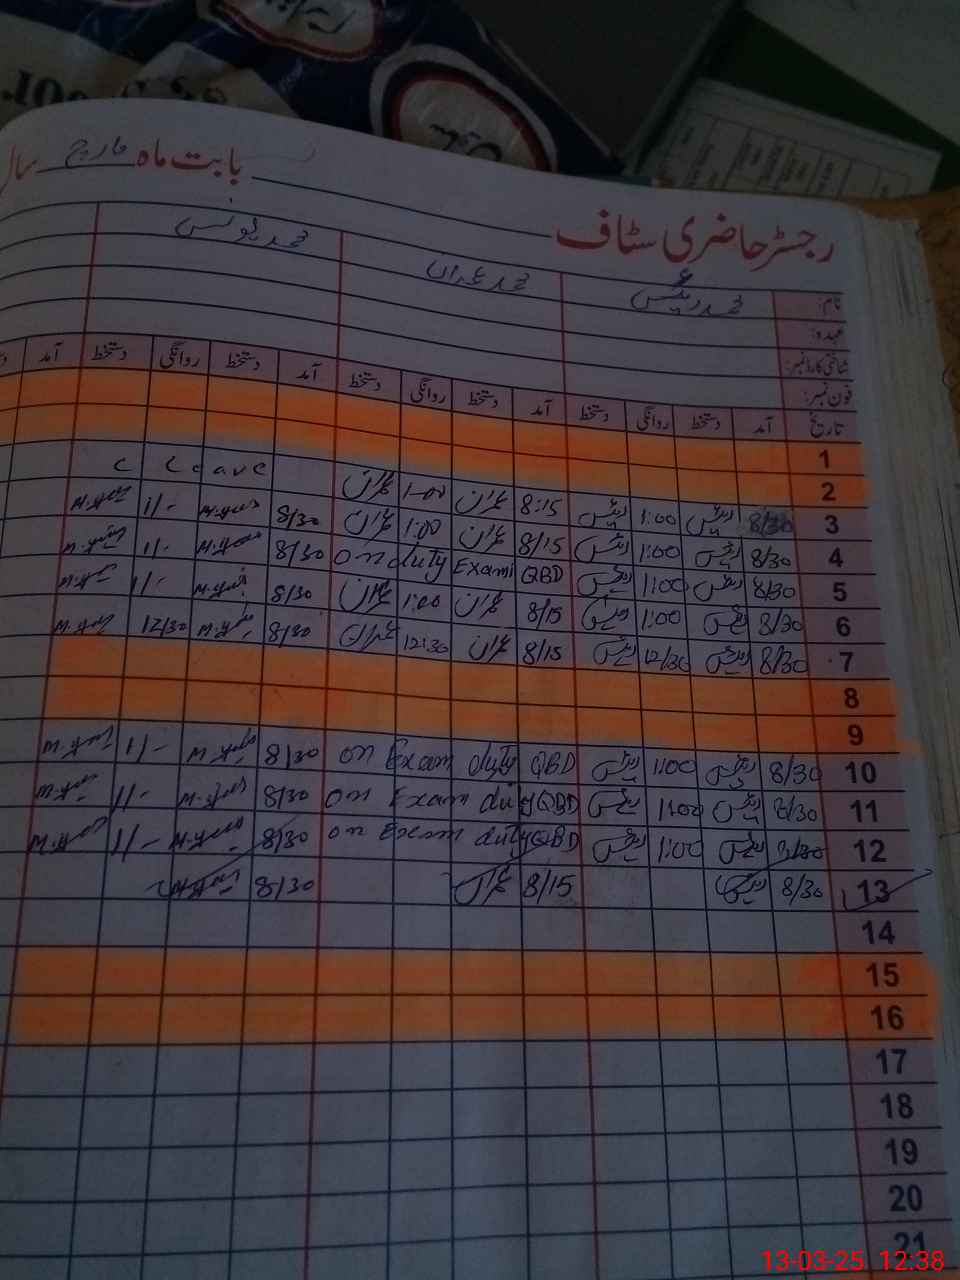 بابت ماہ مارچ سال
رجسٹر حاضری سٹاف
نام: محمد رئیس محمد عمران محمد یونس
عہدہ:
شناختی کارڈ نمبر:
فون نمبر:
تاریخ آمد دستخط روانگی دستخط آمد دستخط روانگی دستخط آمد دستخط روانگی دستخط آمد
1
2
3 8/30 رئیس 1:00 رئیس 8:15 عمران 1:00 عمران C Leave
4 8/30 رئیس 1:00 رئیس 8/15 عمران 1:00 عمران 8/30 1/-
5 8/30 رئیس 1:00 رئیس on duty Exami QBD 8/30 1/-
6 8/30 رئیس 1:00 رئیس 8/15 عمران 1:00 عمران 8/30 1/-
7 8/30 رئیس 12/30 رئیس 8/15 عمران 12:30 عمران 8/30 12/30
8
9
10 8/30 رئیس 1:00 رئیس on Exam duty QBD 8/30 1/-
11 8/30 رئیس 1:00 رئیس on Exam duty QBD 8/30 1/-
12 8/30 رئیس 1:00 رئیس on Exam duty QBD 8/30 1/-
13 8/30 رئیس 8/15 عمران 8/30
14
15
16
17
18
19
20
21
13-03-25 12:38